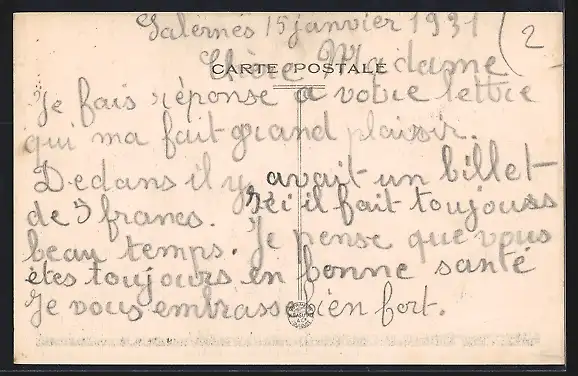 Salernes 15 janvier 1931 (2
Chère Madame
CARTE POSTALE
Je fais réponse a votre lettre
qui ma fait grand plaisir.
Dedans il y avait un billet
de 5 francs. Ici il fait toujours
beau temps. Je pense que vous
êtes toujours en bonne santé
Je vous embrasse bien fort.